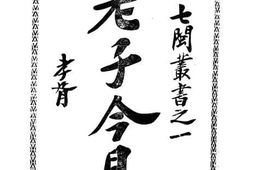 七閩叢書之一
老子今